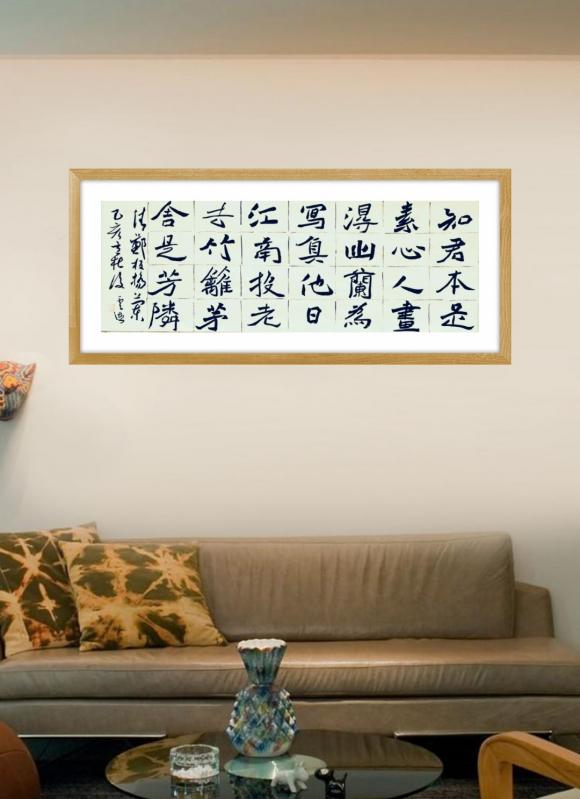 知君本是
素心人畫
得幽蘭為
寫真他日
江南投老
去竹籬茅
舍是芳隣
鄭板橋蘭
乙亥立秋後